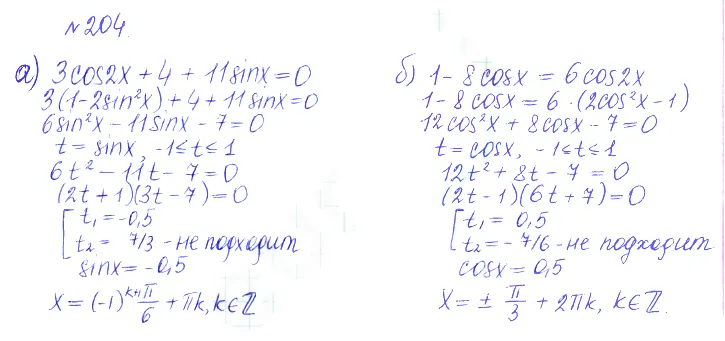 № 204.
а) 3cos2x + 4 + 11sinx = 0
3(1-2sin²x) + 4 + 11sinx = 0
6sin²x - 11sinx - 7 = 0
t = sinx, -1 ≤ t ≤ 1
6t² - 11t - 7 = 0
(2t + 1)(3t - 7) = 0
[ t₁ = -0,5
t₂ = 7/3 - не подходит
sinx = -0,5
x = (-1)^{k+1} π/6 + πk, k∈ℤ
б) 1 - 8cosx = 6cos2x
1 - 8cosx = 6·(2cos²x - 1)
12cos²x + 8cosx - 7 = 0
t = cosx, -1 ≤ t ≤ 1
12t² + 8t - 7 = 0
(2t - 1)(6t + 7) = 0
[ t₁ = 0,5
t₂ = - 7/6 - не подходит
cosx = 0,5
x = ± π/3 + 2πk, k∈ℤ.